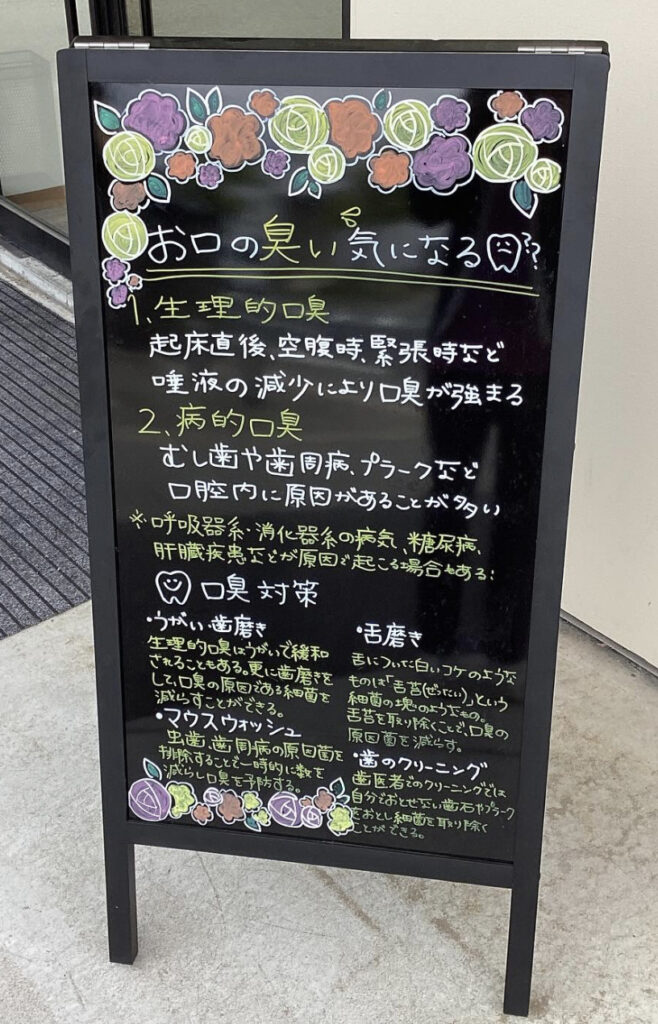 お口の臭い気になる??
1、生理的口臭
起床直後、空腹時、緊張時など
唾液の減少により口臭が強まる
2、病的口臭
むし歯や歯周病、プラークなど
口腔内に原因があることが多い
※呼吸器系・消化器系の病気、糖尿病、
肝臓疾患などが原因で起こる場合もある!
口臭対策
・うがい・歯磨き
生理的口臭はうがいで緩和
されることもある。更に歯磨きを
して、口臭の原因である細菌を
減らすことができる。
・マウスウォッシュ
虫歯、歯周病の原因菌を
排除することで一時的に数を
減らし口臭を予防する。
・舌磨き
舌についた白いコケのような
ものは「舌苔(ぜったい)」という
細菌の塊のようなもの。
舌苔を取り除くことで、口臭の
原因菌を減らす。
・歯のクリーニング
歯医者でのクリーニングでは
自分でおとせない歯石やプラーク
をおとし細菌を取り除く
ことができる。